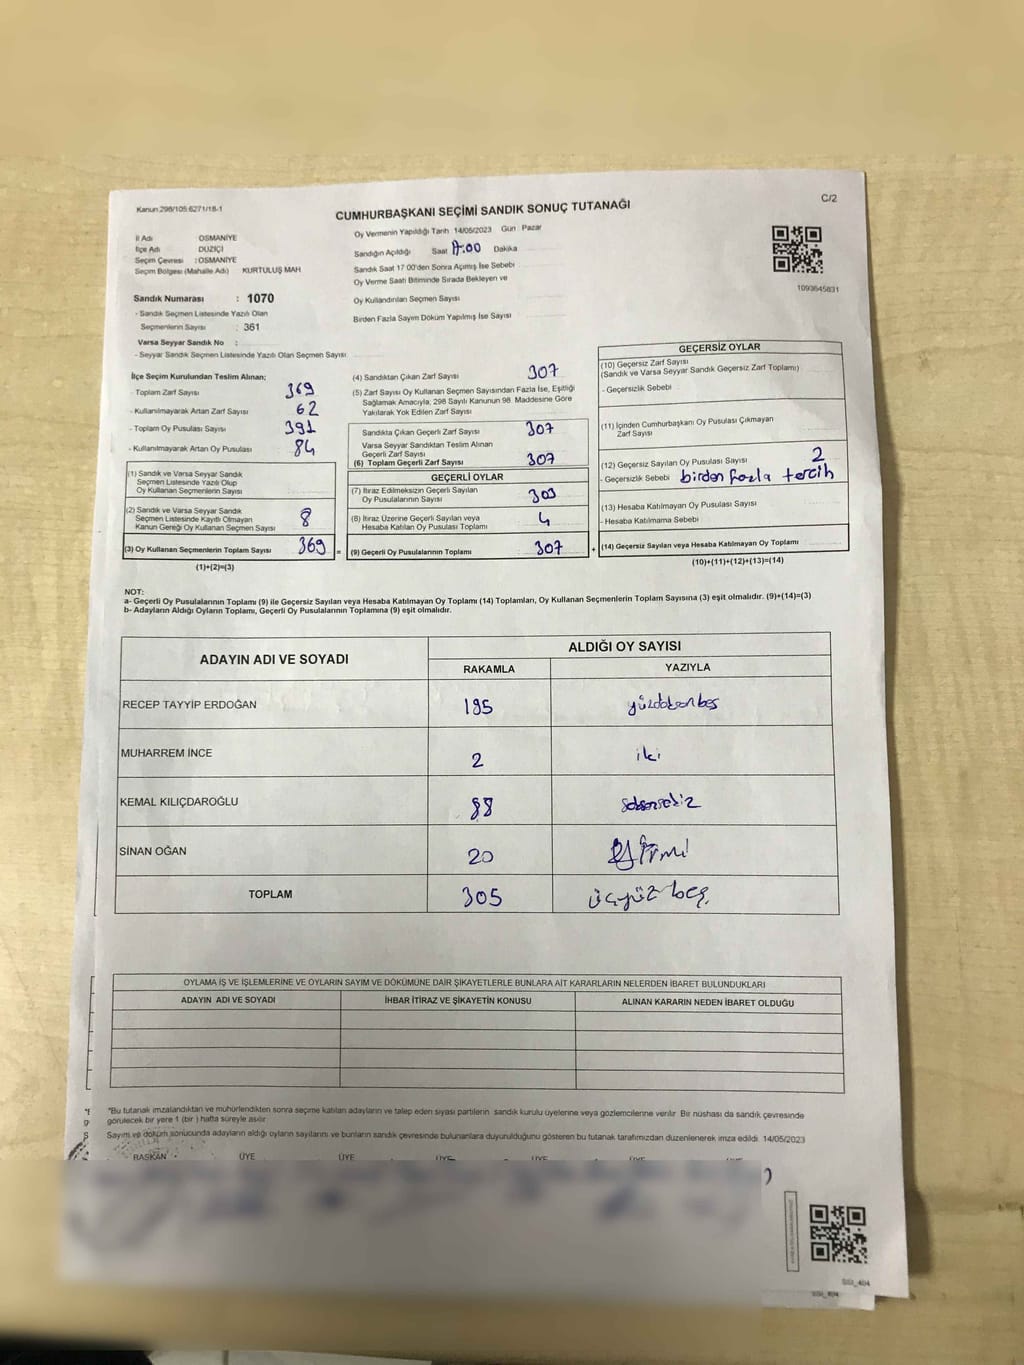 Kanun 298/105 6271/18-1
C/2
CUMHURBAŞKANI SEÇİMİ SANDIK SONUÇ TUTANAĞI
İl Adı OSMANİYE
İlçe Adı DÜZİÇİ
Seçim Çevresi : OSMANİYE
Seçim Bölgesi (Mahalle Adı) KURTULUŞ MAH
Sandık Numarası : 1070
- Sandık Seçmen Listesinde Yazılı Olan
Seçmenlerin Sayısı : 361
Varsa Seyyar Sandık No :
- Seyyar Sandık Seçmen Listesinde Yazılı Olan Seçmen Sayısı
Oy Vermenin Yapıldığı Tarih 14/05/2023 Gün : Pazar
Sandığın Açıldığı Saat 17.00 Dakika
Sandık Saat 17 00'den Sonra Açılmış İse Sebebi
Oy Verme Saati Bitiminde Sırada Bekleyen ve
Oy Kullandırılan Seçmen Sayısı
Birden Fazla Sayım Döküm Yapılmış İse Sayısı
1093645831
İlçe Seçim Kurulundan Teslim Alınan;
- Toplam Zarf Sayısı 369
- Kullanılmayarak Artan Zarf Sayısı 62
- Toplam Oy Pusulası Sayısı 391
- Kullanılmayarak Artan Oy Pusulası 84
(1) Sandık ve Varsa Seyyar Sandık
Seçmen Listesinde Yazılı Olup
Oy Kullanan Seçmenlerin Sayısı
(2) Sandık ve Varsa Seyyar Sandık
Seçmen Listesinde Kayıtlı Olmayan
Kanun Gereği Oy Kullanan Seçmen Sayısı 8
(3) Oy Kullanan Seçmenlerin Toplam Sayısı 369 =
(1)+(2)=(3)
(4) Sandıktan Çıkan Zarf Sayısı 307
(5) Zarf Sayısı Oy Kullanan Seçmen Sayısından Fazla İse, Eşitliği
Sağlamak Amacıyla, 298 Sayılı Kanunun 98. Maddesine Göre
Yakılarak Yok Edilen Zarf Sayısı
Sandıkta Çıkan Geçerli Zarf Sayısı 307
Varsa Seyyar Sandıktan Teslim Alınan
Geçerli Zarf Sayısı
(6) Toplam Geçerli Zarf Sayısı 307
GEÇERLİ OYLAR
(7) İtiraz Edilmeksizin Geçerli Sayılan
Oy Pusulalarının Sayısı 303
(8) İtiraz Üzerine Geçerli Sayılan veya
Hesaba Katılan Oy Pusulası Toplamı 4
(9) Geçerli Oy Pusulalarının Toplamı 307 +
GEÇERSİZ OYLAR
(10) Geçersiz Zarf Sayısı
(Sandık ve Varsa Seyyar Sandık Geçersiz Zarf Toplamı)
- Geçersizlik Sebebi
(11) İçinden Cumhurbaşkanı Oy Pusulası Çıkmayan
Zarf Sayısı
(12) Geçersiz Sayılan Oy Pusulası Sayısı 2
- Geçersizlik Sebebi birden fazla tercih
(13) Hesaba Katılmayan Oy Pusulası Sayısı
- Hesaba Katılmama Sebebi
(14) Geçersiz Sayılan veya Hesaba Katılmayan Oy Toplamı
(10)+(11)+(12)+(13)=(14)
NOT:
a- Geçerli Oy Pusulalarının Toplamı (9) ile Geçersiz Sayılan veya Hesaba Katılmayan Oy Toplamı (14) Toplamları, Oy Kullanan Seçmenlerin Toplam Sayısına (3) eşit olmalıdır. (9)+(14)=(3)
b- Adayların Aldığı Oyların Toplamı, Geçerli Oy Pusulalarının Toplamına (9) eşit olmalıdır.
ADAYIN ADI VE SOYADI
ALDIĞI OY SAYISI
RAKAMLA YAZIYLA
RECEP TAYYİP ERDOĞAN 195 yüzdoksanbeş
MUHARREM İNCE 2 iki
KEMAL KILIÇDAROĞLU 88 seksensekiz
SİNAN OĞAN 20 yirmi
TOPLAM 305 üçyüz beş
OYLAMA İŞ VE İŞLEMLERİNE VE OYLARIN SAYIM VE DÖKÜMÜNE DAİR ŞİKAYETLERLE BUNLARA AİT KARARLARIN NELERDEN İBARET BULUNDUKLARI
ADAYIN ADI VE SOYADI İHBAR İTİRAZ VE ŞİKAYETİN KONUSU ALINAN KARARIN NEDEN İBARET OLDUĞU
*Bu tutanak imzalandıktan ve mühürlendikten sonra seçime katılan adayların ve talep eden siyasi partilerin sandık kurulu üyelerine veya gözlemcilerine verilir. Bir nüshası da sandık çevresinde
görülecek bir yere 1 (bir ) hafta süreyle asılır.
Sayım ve döküm sonucunda adayların aldığı oyların sayılarını ve bunların sandık çevresinde bulunanlara duyurulduğunu gösteren bu tutanak tarafımızdan düzenlenerek imza edildi. 14/05/2023
BAŞKAN ÜYE ÜYE ÜYE ÜYE ÜYE ÜYE
SSI_404
SSI_404